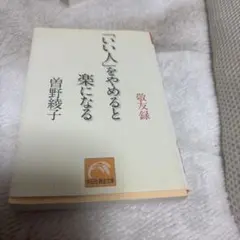 敬友録
「いい人」をやめると
楽になる
曽野綾子